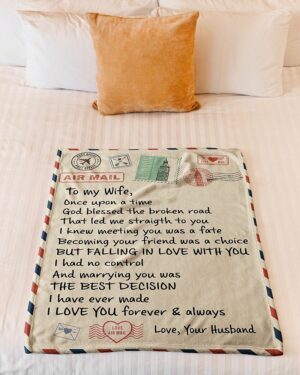 AIR MAIL
To my Wife,
Once upon a time
God blessed the broken road
That led me straigth to you
I knew meeting you was a fate
Becoming your friend was a choice
BUT FALLING IN LOVE WITH YOU
I had no control
And marrying you was
THE BEST DECISION
I have ever made
I LOVE YOU forever & always
Love, Your Husband
LOVE
AIR MAIL